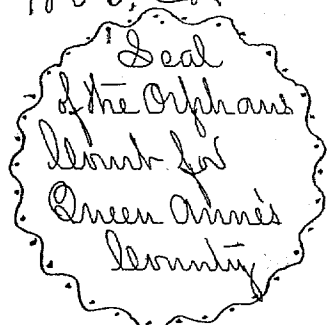 Seal
of the Orphans
Court for
Queen Anne's
County